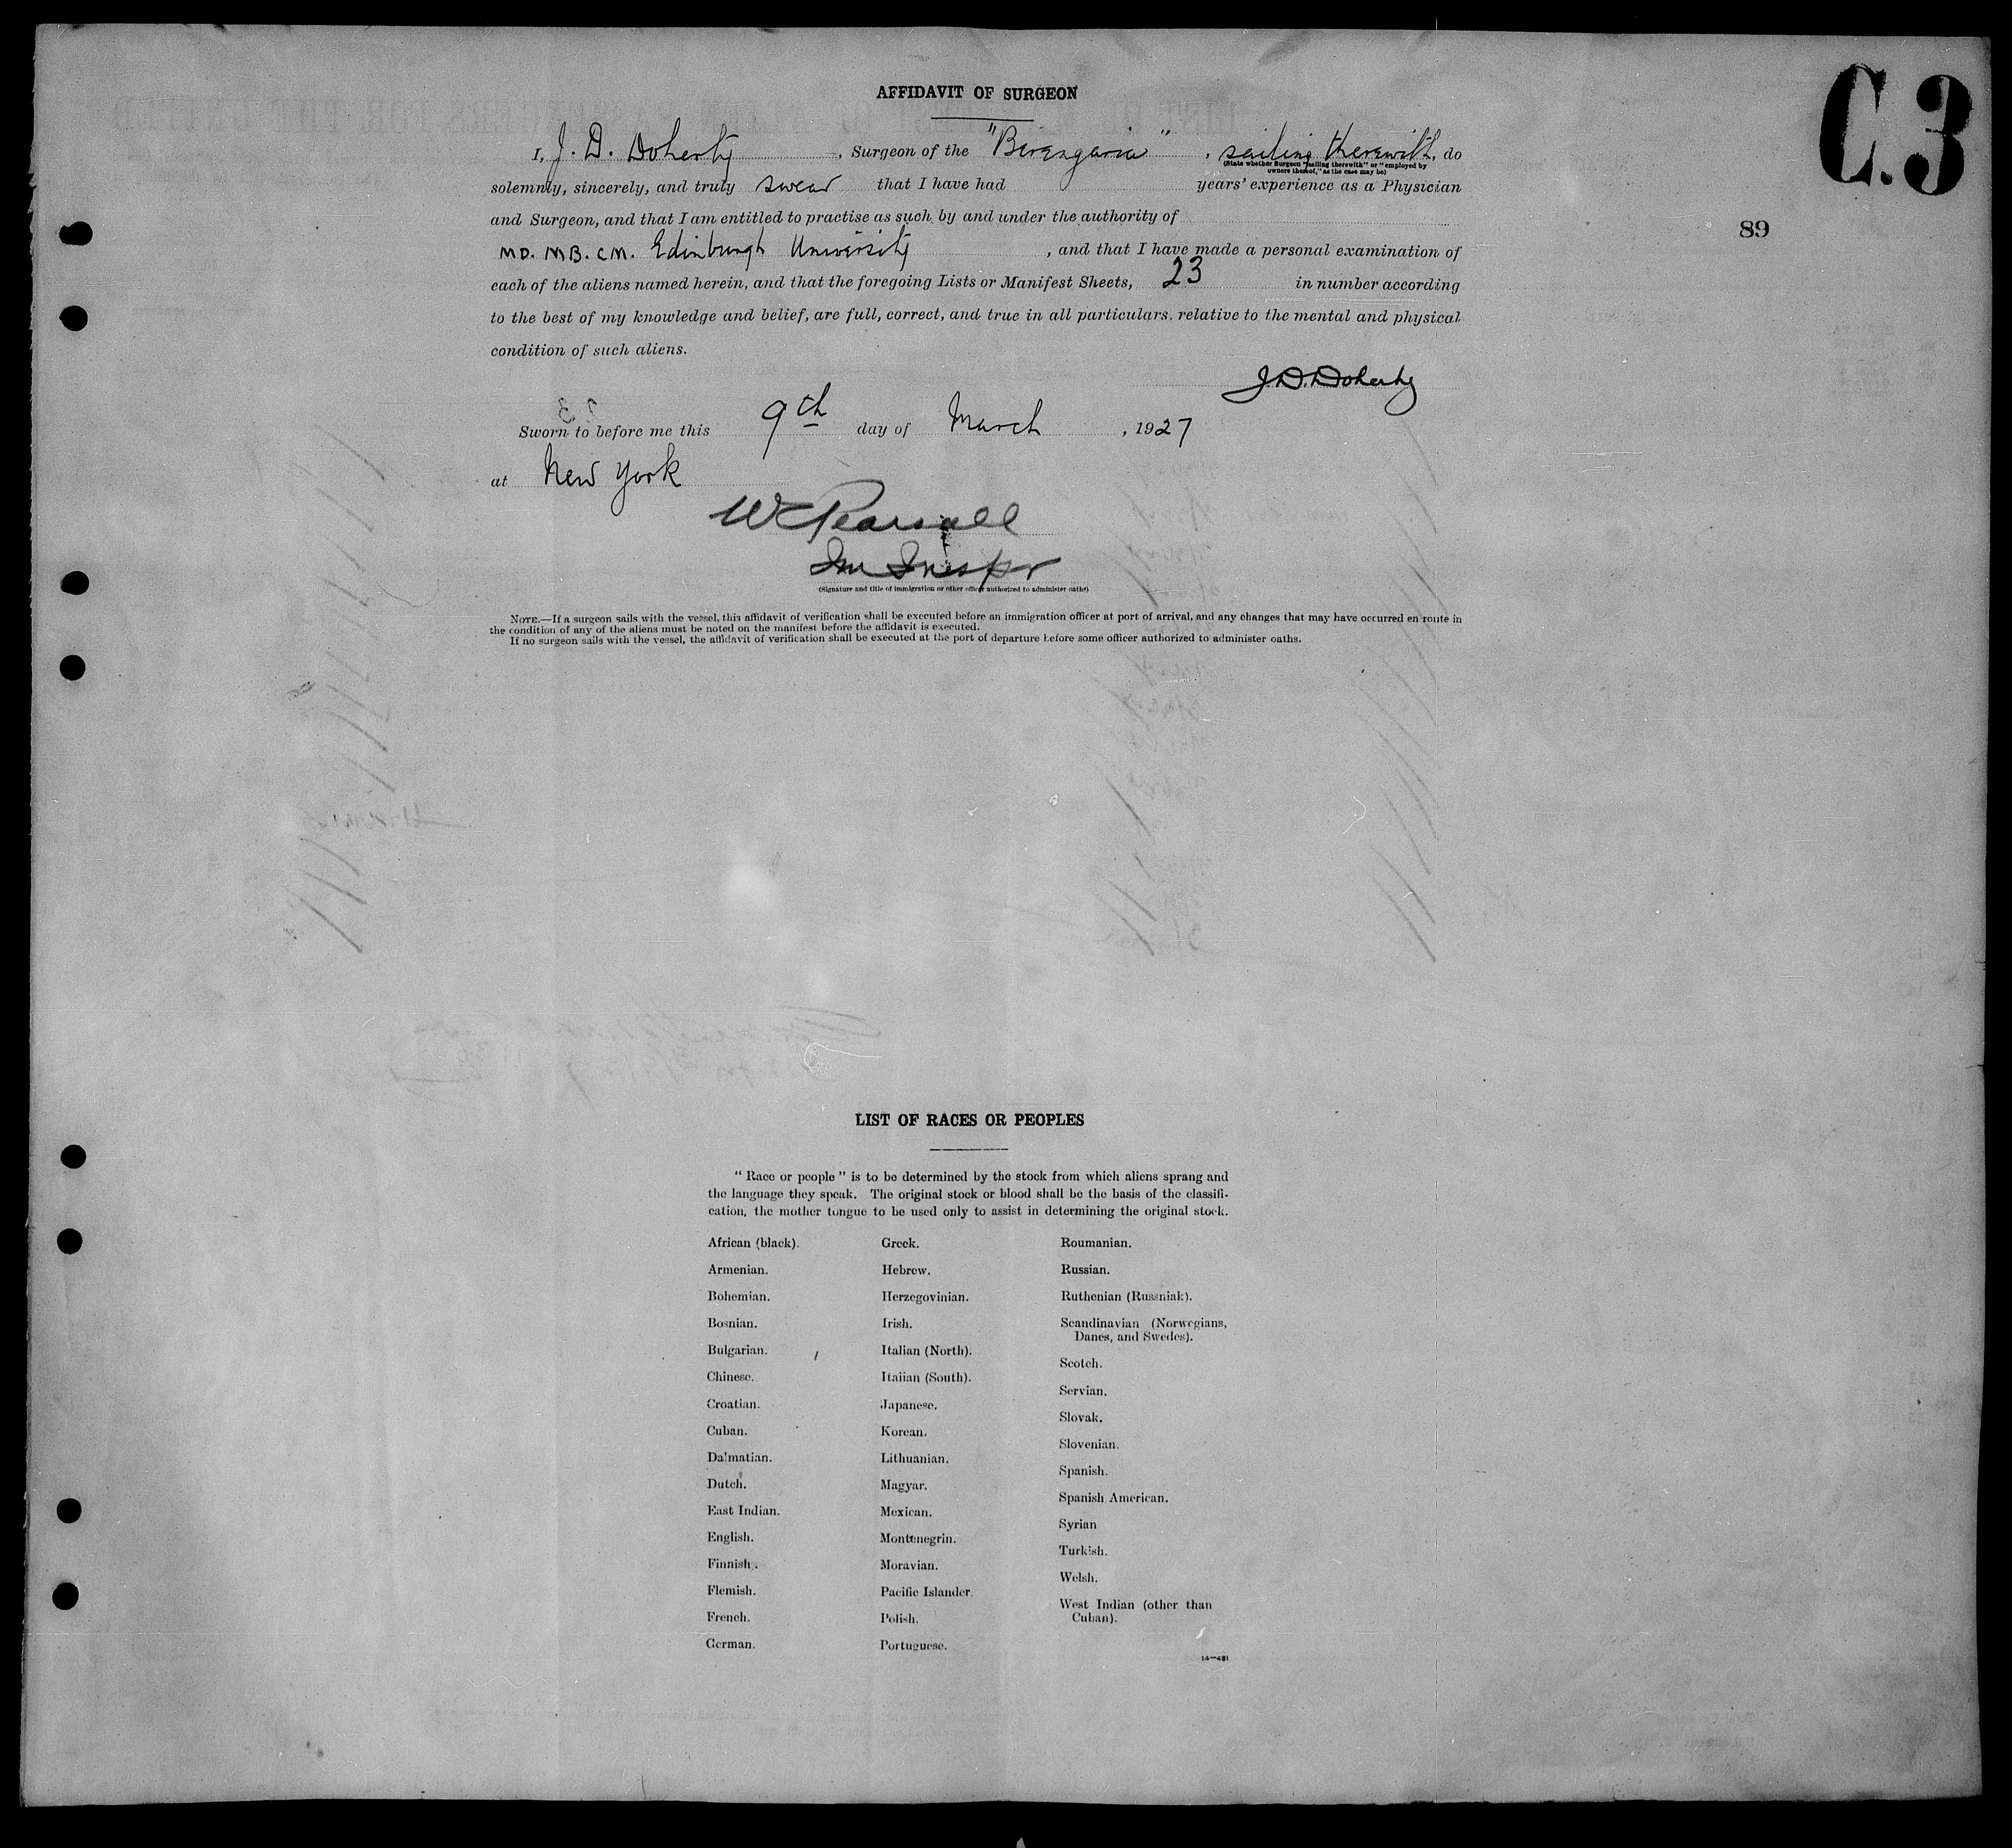 C.3
89
AFFIDAVIT OF SURGEON
I, J. D. Doherty, Surgeon of the "Berengaria", sailing therewith, do
(State whether Surgeon "sailing therewith" or "employed by
owners thereof," as the case may be)
solemnly, sincerely, and truly swear that I have had years' experience as a Physician
and Surgeon, and that I am entitled to practise as such by and under the authority of
MD. MB. CM. Edinburgh University, and that I have made a personal examination of
each of the aliens named herein, and that the foregoing Lists or Manifest Sheets, 23 in number according
to the best of my knowledge and belief, are full, correct, and true in all particulars, relative to the mental and physical
condition of such aliens.
J. D. Doherty
Sworn to before me this 9th day of March, 1927
at New York
W C Pearsall
Im Inspr
(Signature and title of immigration or other officer authorized to administer oaths)
NOTE.—If a surgeon sails with the vessel, this affidavit of verification shall be executed before an immigration officer at port of arrival, and any changes that may have occurred en route in
the condition of any of the aliens must be noted on the manifest before the affidavit is executed.
If no surgeon sails with the vessel, the affidavit of verification shall be executed at the port of departure before some officer authorized to administer oaths.
LIST OF RACES OR PEOPLES
"Race or people" is to be determined by the stock from which aliens sprang and
the language they speak. The original stock or blood shall be the basis of the classifi-
cation, the mother tongue to be used only to assist in determining the original stock.
African (black).
Armenian.
Bohemian.
Bosnian.
Bulgarian.
Chinese.
Croatian.
Cuban.
Dalmatian.
Dutch.
East Indian.
English.
Finnish.
Flemish.
French.
German.
Greek.
Hebrew.
Herzegovinian.
Irish.
Italian (North).
Italian (South).
Japanese.
Korean.
Lithuanian.
Magyar.
Mexican.
Montenegrin.
Moravian.
Pacific Islander.
Polish.
Portuguese.
Roumanian.
Russian.
Ruthenian (Russniak).
Scandinavian (Norwegians,
Danes, and Swedes).
Scotch.
Servian.
Slovak.
Slovenian.
Spanish.
Spanish American.
Syrian
Turkish.
Welsh.
West Indian (other than
Cuban).
14—481